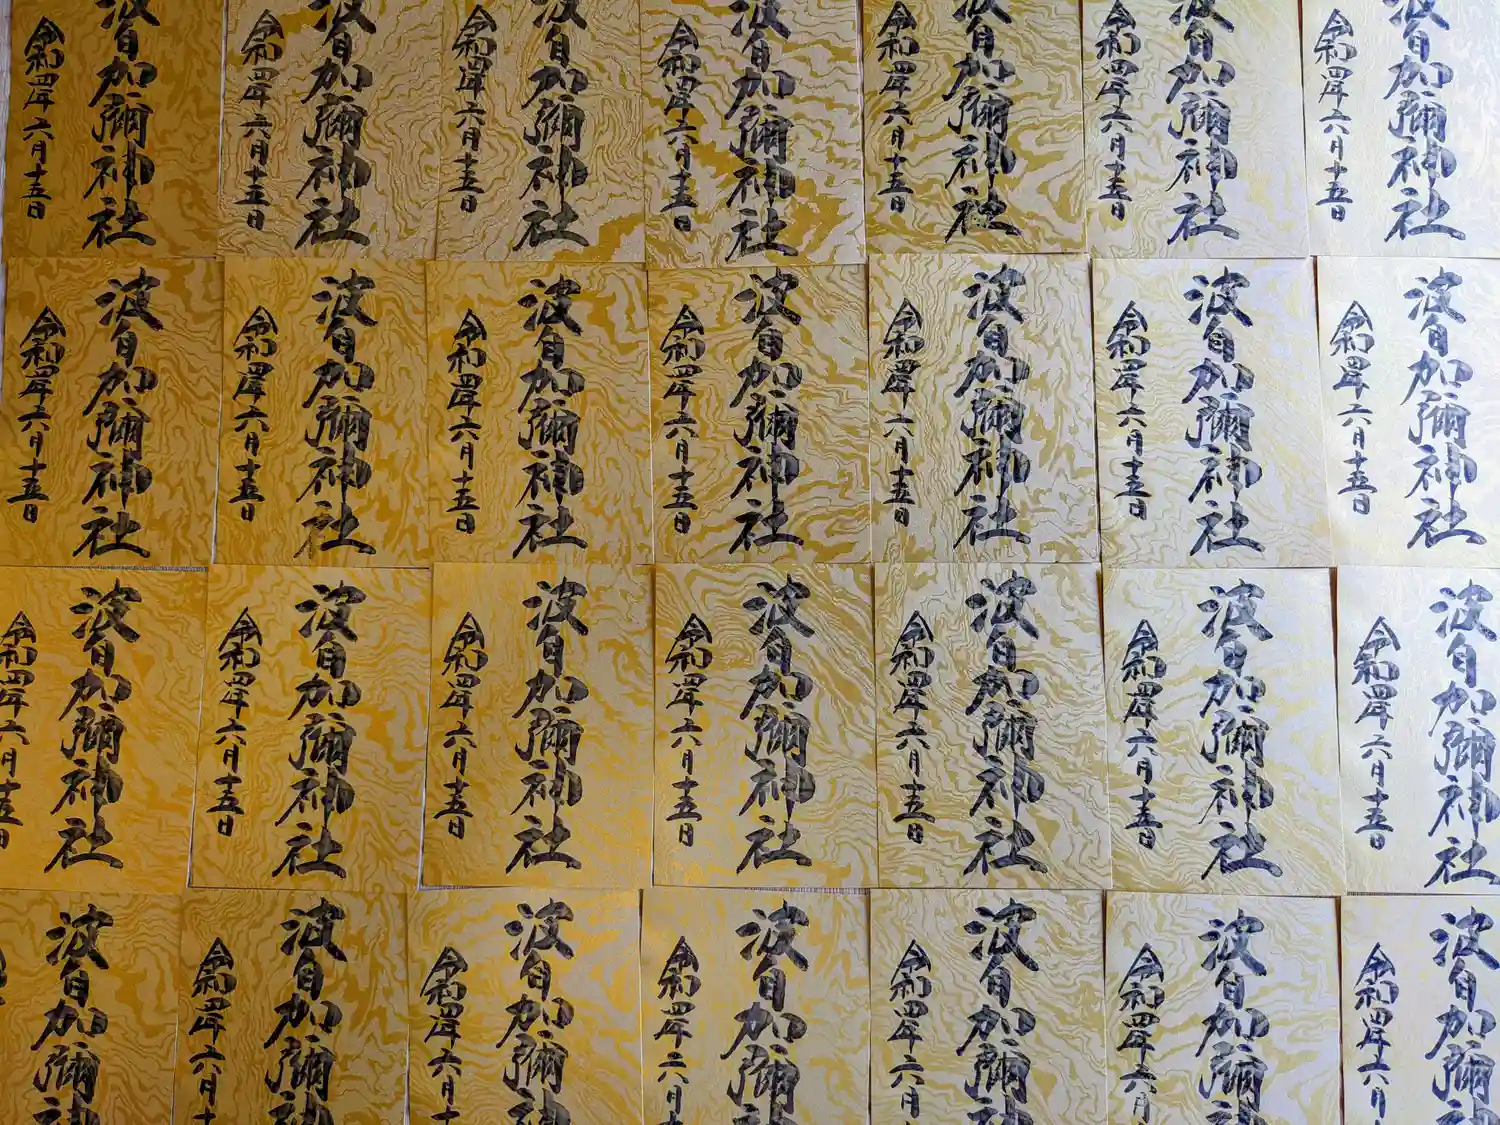 波自加彌神社
令和四年六月十五日
波自加彌神社
令和四年六月十五日
波自加彌神社
令和四年六月十五日
波自加彌神社
令和四年六月十五日
波自加彌神社
令和四年六月十五日
波自加彌神社
令和四年六月十五日
波自加彌神社
令和四年六月十五日
波自加彌神社
令和四年六月十五日
波自加彌神社
令和四年六月十五日
波自加彌神社
令和四年六月十五日
波自加彌神社
令和四年六月十五日
波自加彌神社
令和四年六月十五日
波自加彌神社
令和四年六月十五日
波自加彌神社
令和四年六月十五日
波自加彌神社
令和四年六月十五日
波自加彌神社
令和四年六月十五日
波自加彌神社
令和四年六月十五日
波自加彌神社
令和四年六月十五日
波自加彌神社
令和四年六月十五日
波自加彌神社
令和四年六月十五日
波自加彌神社
令和四年六月十五日
波自加彌神
令和四年六月
波自加彌神
令和四年六月
波自加彌神
令和四年六月
波自加彌
令和四年六月
波自加彌神
令和四年六月十
波自加彌神
令和四年六月十
波自加彌神